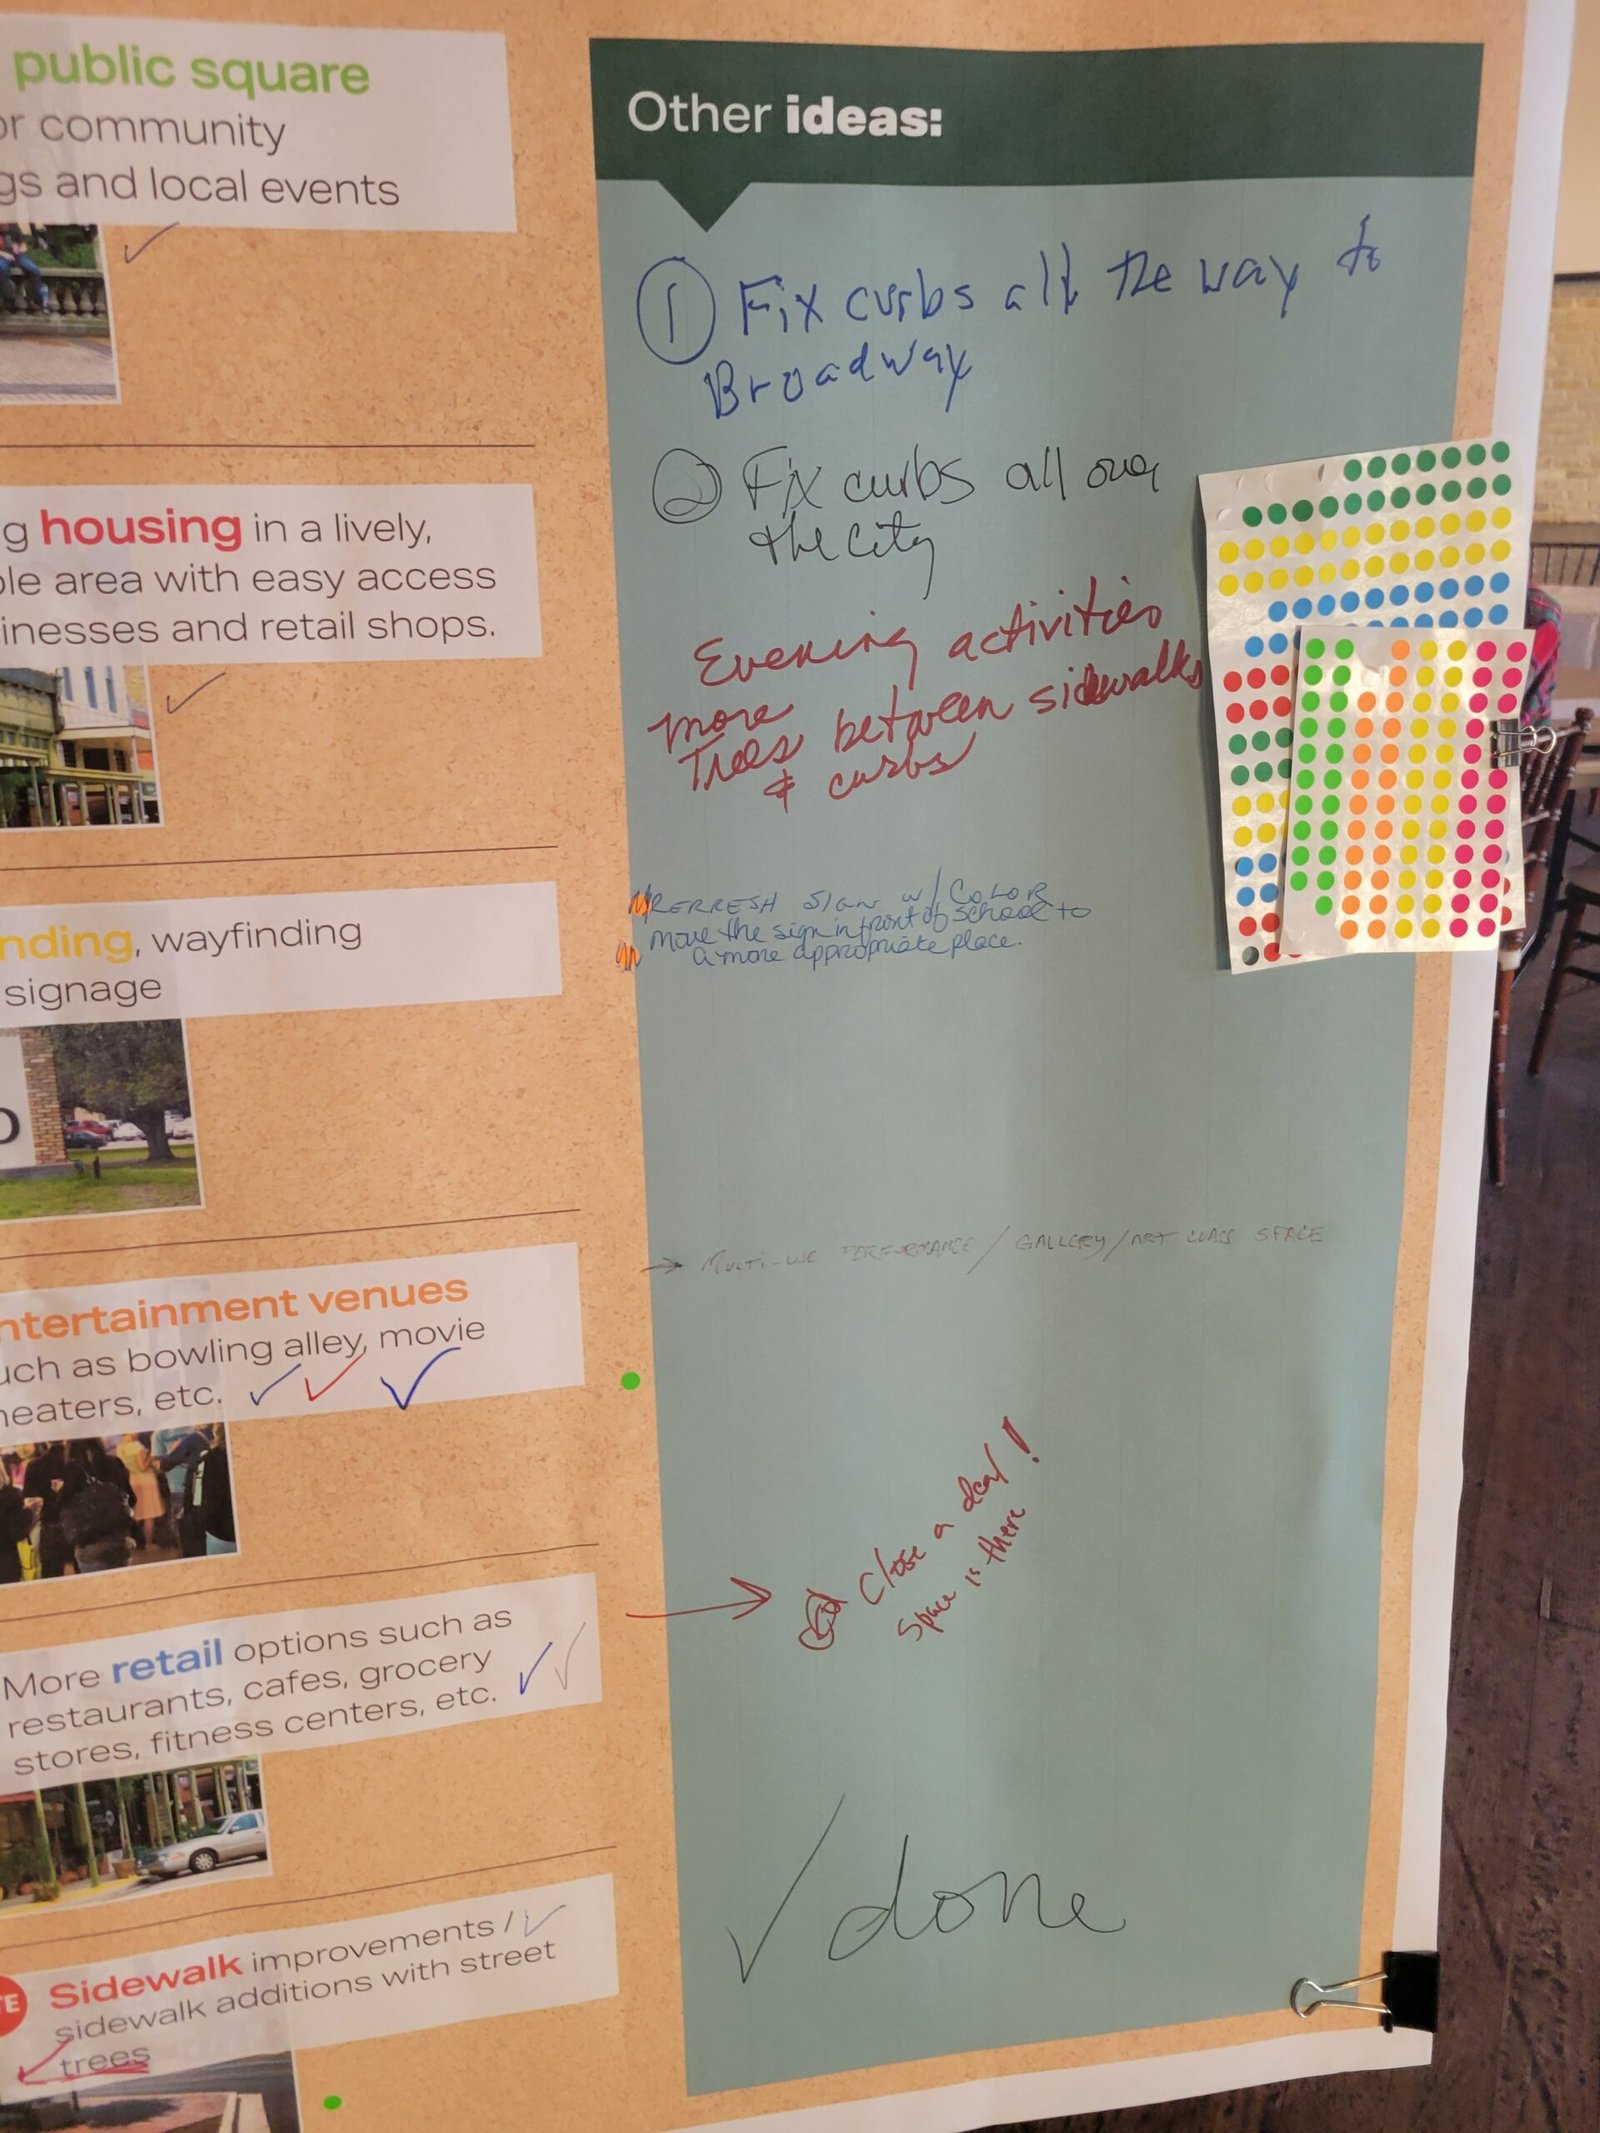 public square
or community
gs and local events
g housing in a lively,
ble area with easy access
inesses and retail shops.
nding, wayfinding
signage
ntertainment venues
uch as bowling alley, movie
heaters, etc.
More retail options such as
restaurants, cafes, grocery
stores, fitness centers, etc.
Sidewalk improvements /
sidewalk additions with street
trees
Other ideas:
1 Fix curbs all the way to
Broadway
2 Fix curbs all over
the city
Evening activities
more
Trees between sidewalks
& curbs
REFRESH SIGN W/ COLOR
Move the sign in front of school to
a more appropriate place.
→ MULTI-USE PERFORMANCE / GALLERY / ART CLASS SPACE
Close a deal!
Space is there
✓ done